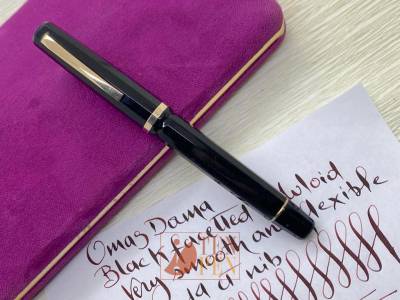 Omas Dama
Black facetted
very smooth and flexible
14 ct nib